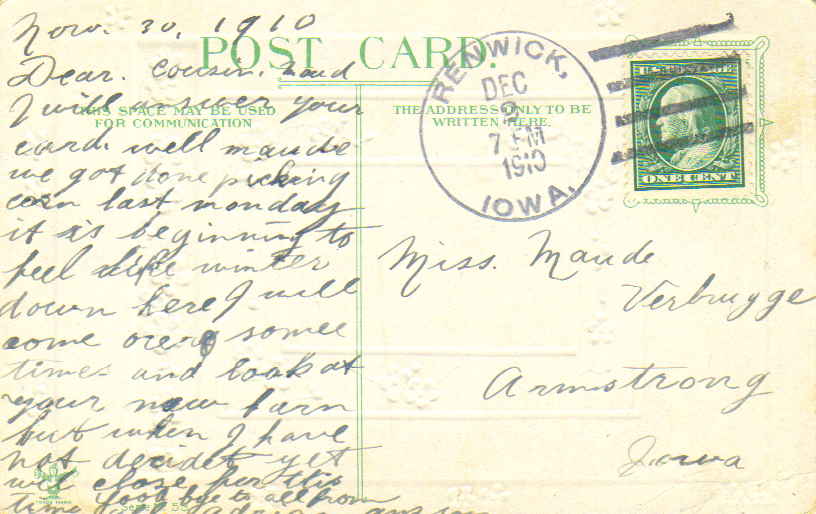 Nov. 30, 1910
Dear. Cousin. Maud
I will answer your
card. well maude
we got done picking
corn last monday
it is beginning to
feel like winter
down here I will
come over some
times and look at
your new barn
but when I have
not decidet yet
will close for this
time good bye to all from
POST CARD.
THIS SPACE MAY BE USED
FOR COMMUNICATION
THE ADDRESS ONLY TO BE
WRITTEN HERE.
RENWICK,
DEC
2
7 PM
1910
IOWA.
U.S. POSTAGE
ONE CENT
Miss. Maude
Verbrugge
Armstrong
Iowa